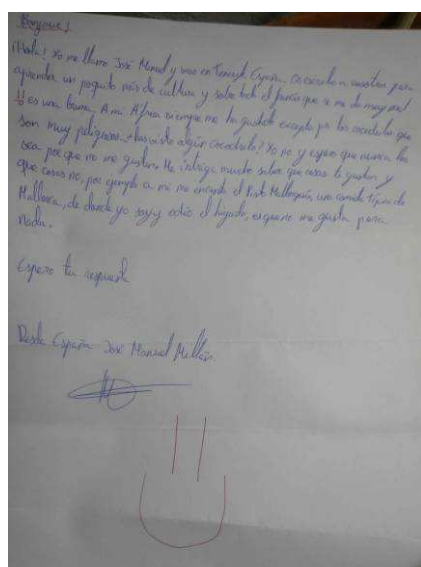 Bonjour!
¡Hola! Yo me llamo José Manuel y vivo en España. Os escribo a vosotros para
aprender un poquito más de cultura y sobre todo el francés que se me da muy mal
!! es una broma. A mi África siempre me ha gustado excepto por los cocodrilos que
son muy peligrosos. ¿has visto algún cocodrilo? Yo no y espero que nunca los
vea porque no me gustan. Me intriga mucho saber que cosas te gustan y
que cosas no, por ejemplo a mi me encanta el una comida típica de
de donde yo soy y odio el hígado, es que no me gusta para
nada.
Espero tu respuesta
Desde España José Manuel